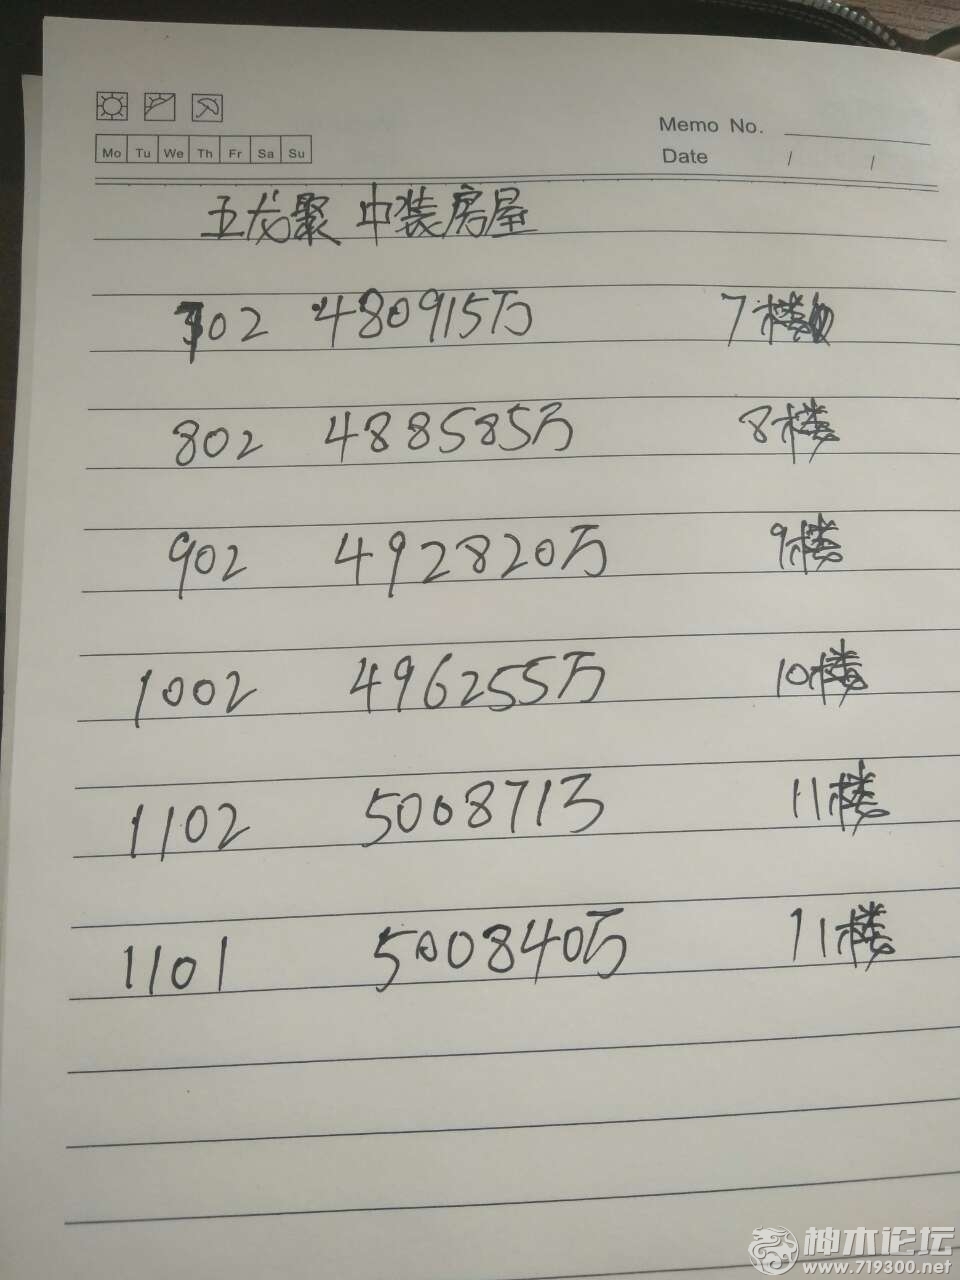 Memo No.
Mo Tu We Th Fr Sa Su
Date / /
五龙聚 中装房屋
702 480915万 7楼
802 488585万 8楼
902 492820万 9楼
1002 496255万 10楼
1102 500871万 11楼
1101 500840万 11楼
神木论坛
www.719300.net